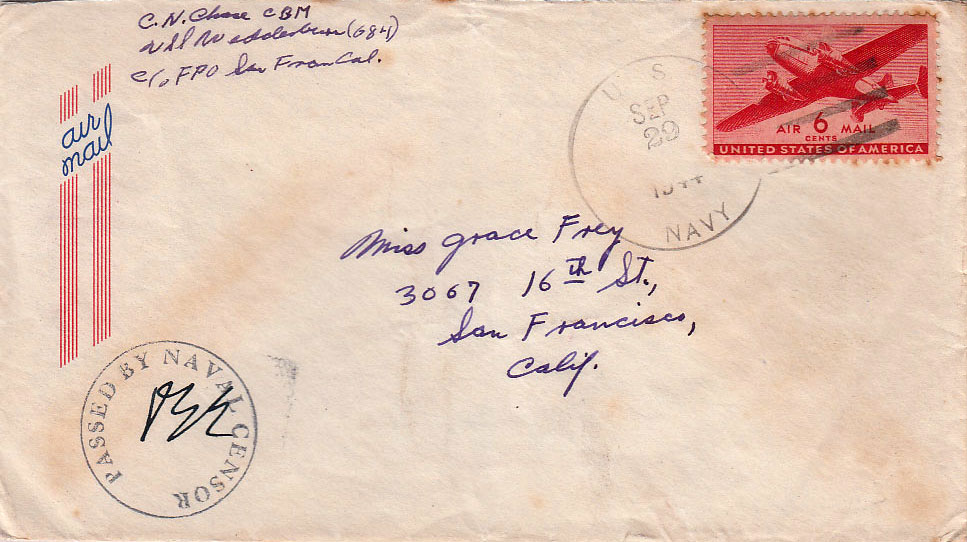 C.N. Chase CBM
USS Wedderburn (684)
c/o FPO San Fran Cal.
air
mail
U S
SEP
29
1944
NAVY
AIR 6 MAIL
CENTS
UNITED STATES OF AMERICA
Miss Grace Frey
3067 16th St.,
San Francisco,
Calif.
PASSED BY NAVAL CENSOR